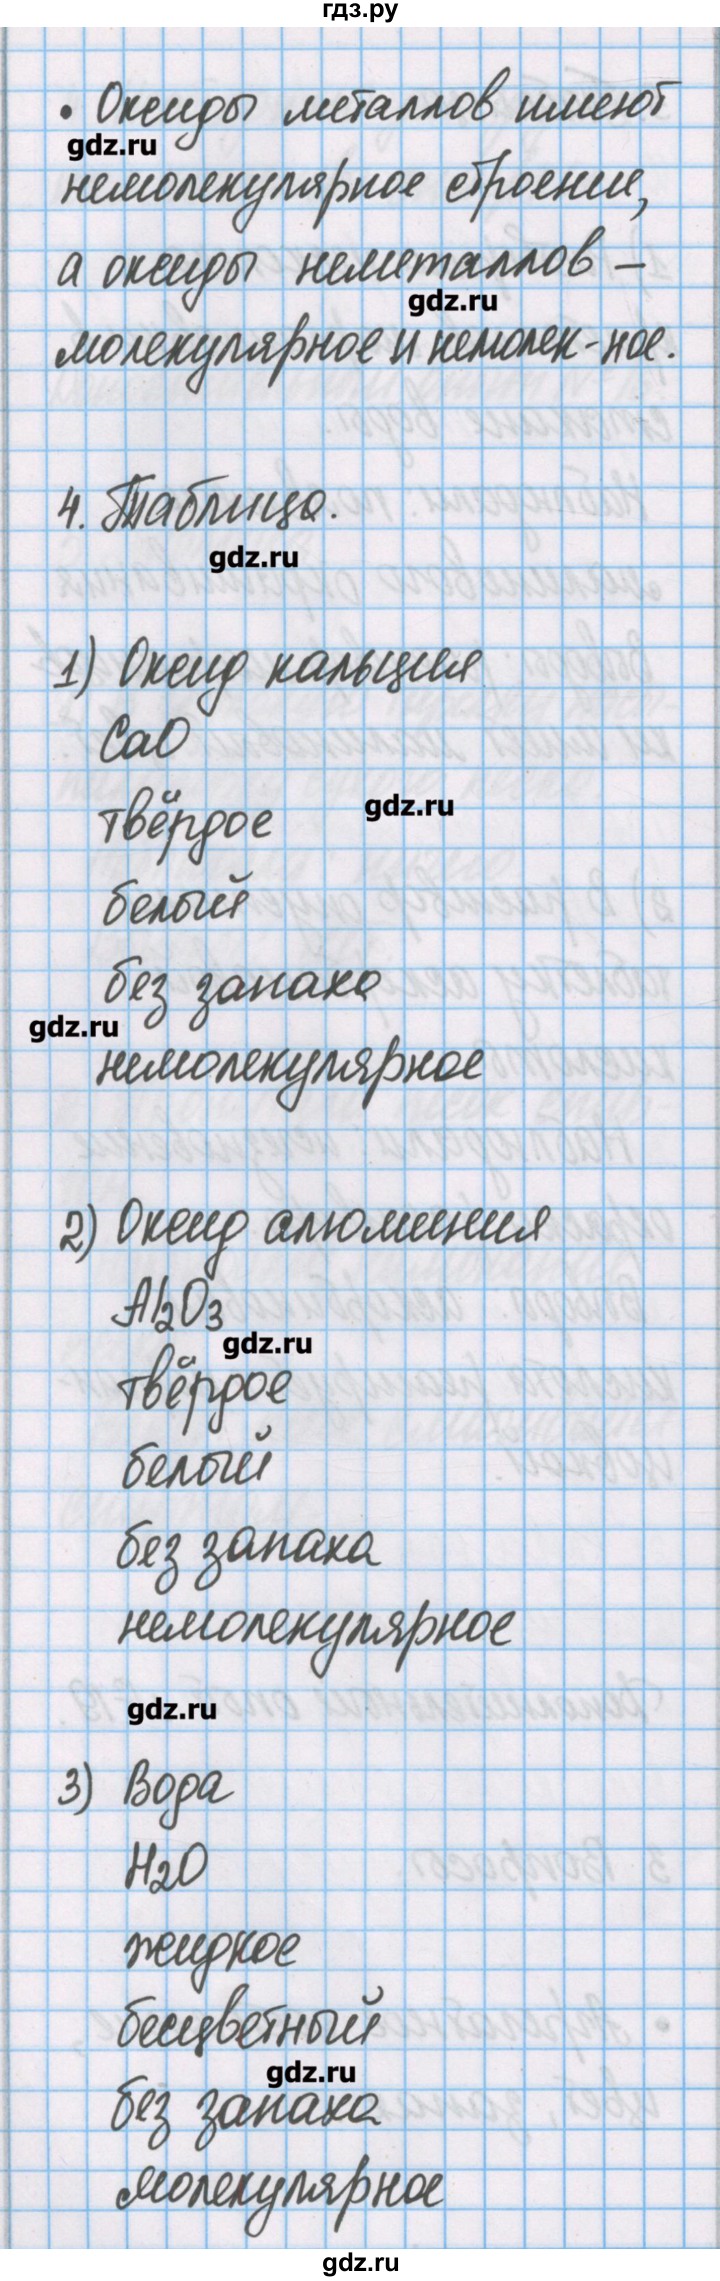 гдз.ру
• Оксиды металлов имеют
gdz.ru
немолекулярное строение,
а оксиды неметаллов –
gdz.ru
молекулярное и немолек-ное.
4. Таблица.
gdz.ru
1) Оксид кальция
CaO
gdz.ru
твёрдое
белый
без запаха
gdz.ru
немолекулярное
2) Оксид алюминия
Al2O3
gdz.ru
твёрдое
белый
без запаха
немолекулярное
gdz.ru
3) Вода
H2O
жидкое
бесцветный
gdz.ru
без запаха
молекулярное
gdz.ru